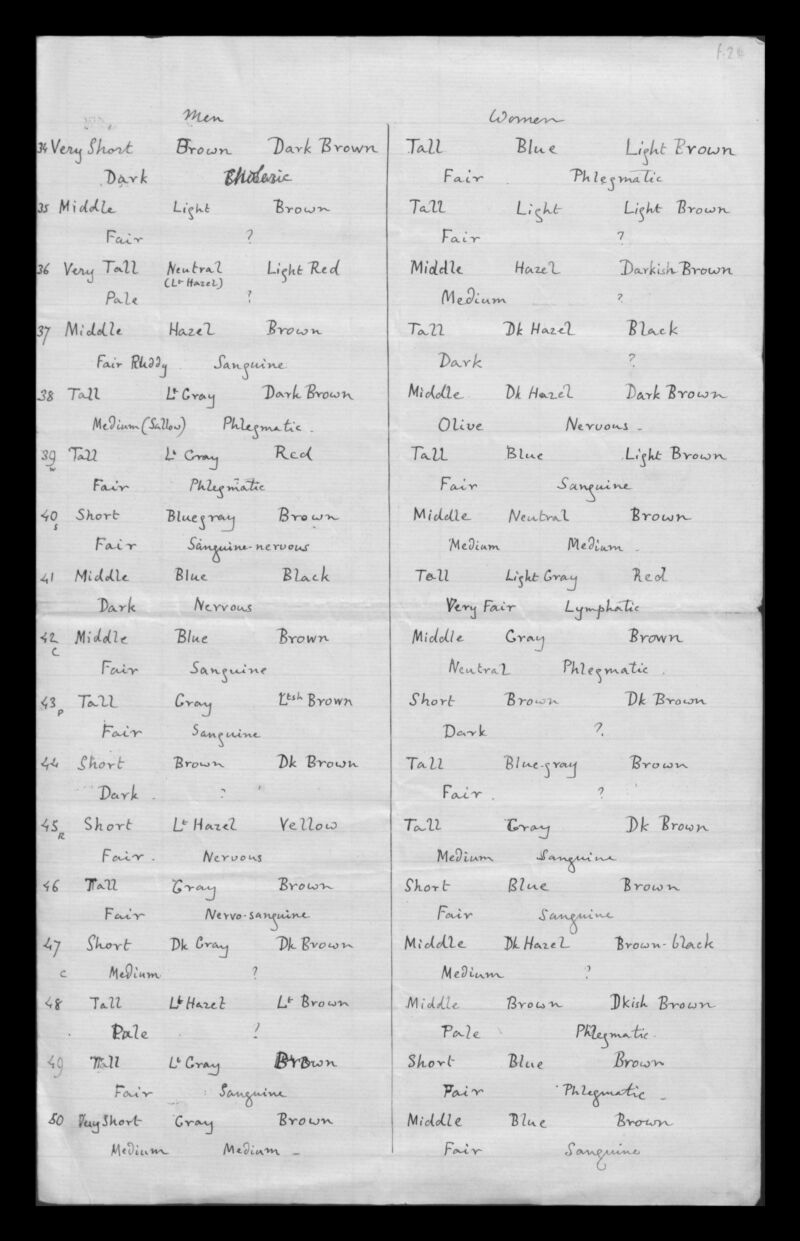 Men Women
34 Very Short Brown Dark Brown Tall Blue Light Brown
Dark Choleric Fair Phlegmatic
35 Middle Light Brown Tall Light Light Brown
Fair ? Fair ?
36 Very Tall Neutral Light Red Middle Hazel Darkish Brown
(Lt Hazel)
Pale ? Medium ?
37 Middle Hazel Brown Tall Dk Hazel Black
Fair Ruddy Sanguine Dark ?
38 Tall Lt Gray Dark Brown Middle Dk Hazel Dark Brown
Medium (Sallow) Phlegmatic. Olive Nervous -
39 Tall Lt Gray Red Tall Blue Light Brown
w Fair Phlegmatic Fair Sanguine
40 Short Bluegray Brown Middle Neutral Brown
s Fair Sanguine-nervous Medium Medium -
41 Middle Blue Black Tall Light Gray Red
Dark Nervous Very Fair Lymphatic
42 Middle Blue Brown Middle Gray Brown
c Fair Sanguine Neutral Phlegmatic.
43 p Tall Gray Ltsh Brown Short Brown Dk Brown
Fair Sanguine Dark ?
44 Short Brown Dk Brown Tall Blue-gray Brown
Dark. ? Fair. ?
45 R Short Lt Hazel Yellow Tall Gray Dk Brown
Fair. Nervous Medium Sanguine
46 Tall Gray Brown Short Blue Brown
Fair Nervo-sanguine Fair Sanguine
47 Short Dk Gray Dk Brown Middle Dk Hazel Brown-black
c Medium ? Medium ?
48 Tall Lt Hazel Lt Brown Middle Brown Dkish Brown
Pale ? Pale Phlegmatic.
49 Tall Lt Gray Brown Short Blue Brown
Fair Sanguine Fair Phlegmatic -
50 Very Short Gray Brown Middle Blue Brown
Medium Medium - Fair Sanguine